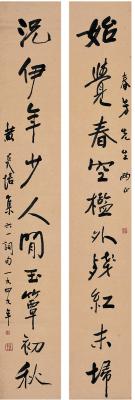 始覺春空檻外殘紅未掃
春芳先生兩正
況伊年少人間玉簟初秋
集六一詞句一九四九年